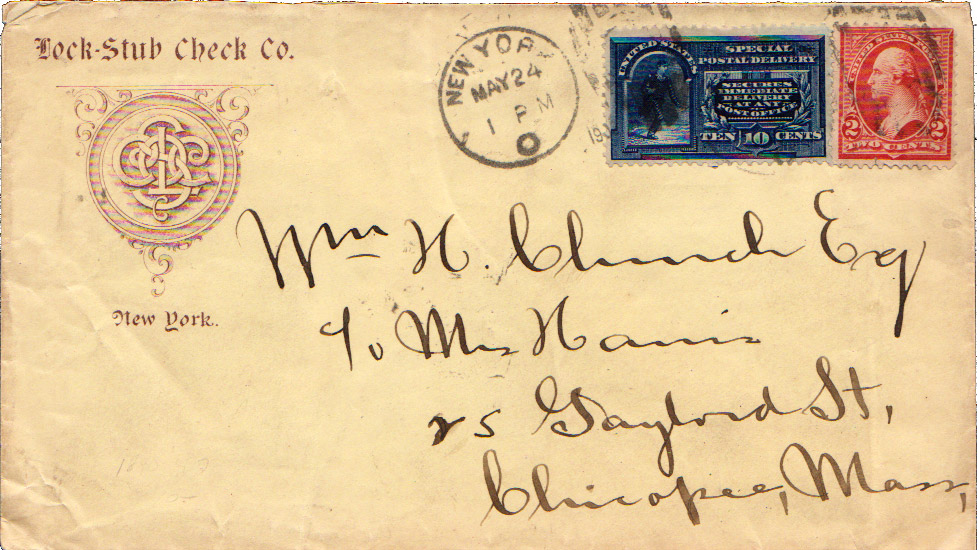 Lock-Stub Check Co.
New York.
NEW YORK
MAY 24
1 PM
O
UNITED STATES
SPECIAL
POSTAL DELIVERY
SECURES
IMMEDIATE
DELIVERY
AT ANY
POST OFFICE
TEN 10 CENTS
UNITED STATES
2 2
TWO CENTS
Wm H. Church Esq
c/o Mrs Harris
25 Gaylord St,
Chicopee, Mass,